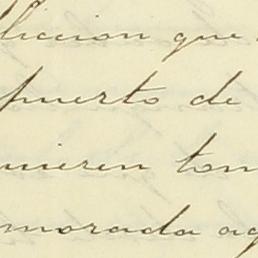 licion que
puerto de
uieren tom
morada ag